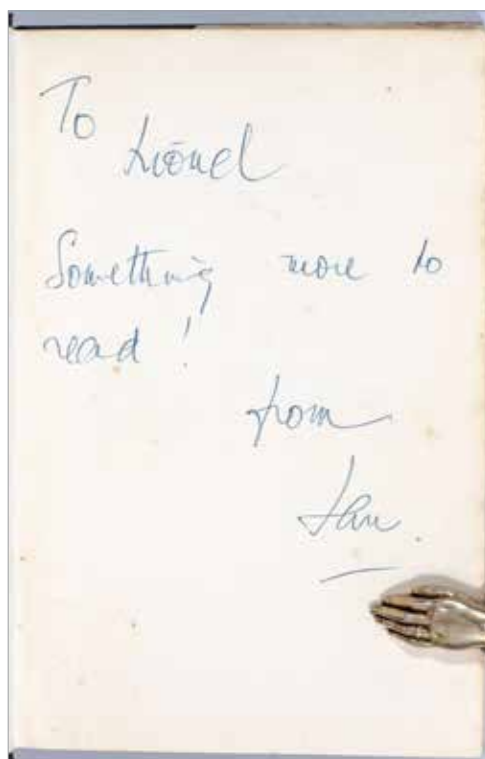 To
Lionel
Something more to
read!
from
Ian.